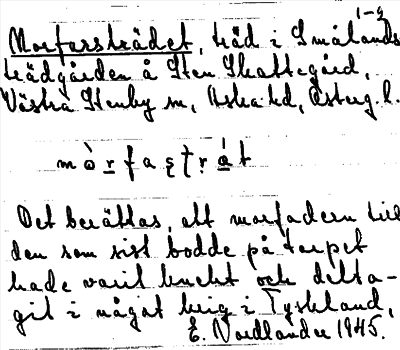 1-4
Morfarsträdet, träd i Smålands
trädgården å Sten Skattegård,
Västra Stenby sn, Aska hd, Österg. l.
m ò r f a s t r ǻ t
Det berättas, att morfadern till
den som sist bodde på torpet
hade varit knekt och delta-
git i något krig i Tyskland,
E. Nordlander 1945.